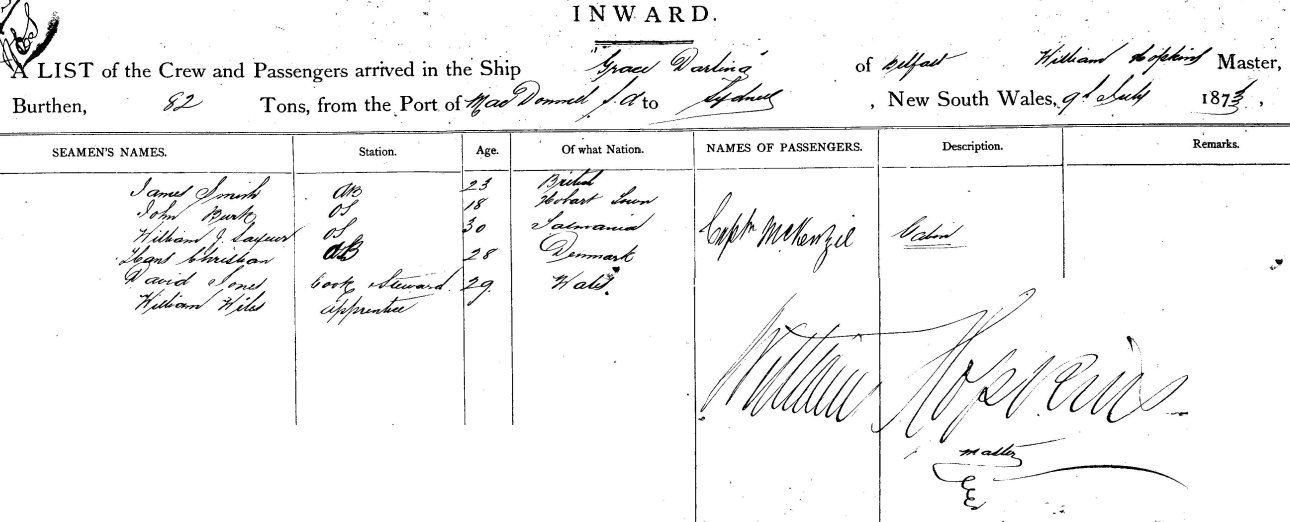 INWARD.
A LIST of the Crew and Passengers arrived in the Ship "Grace Darling" of Belfast William Hopkins Master,
Burthen, 82 Tons, from the Port of MacDonnell S.A to Sydney, New South Wales, 9th July 1873,
SEAMEN'S NAMES. Station. Age. Of what Nation. NAMES OF PASSENGERS. Description. Remarks.
James Smith AB 23 British
John Burk OS 18 Hobart Town
William J. OS 30 Tasmania Captn McKenzie Cabin
Hans Christian AB 28 Denmark
David Jones Cook Steward 29 Wales.
William Wiles apprentice
William Hopkins
master